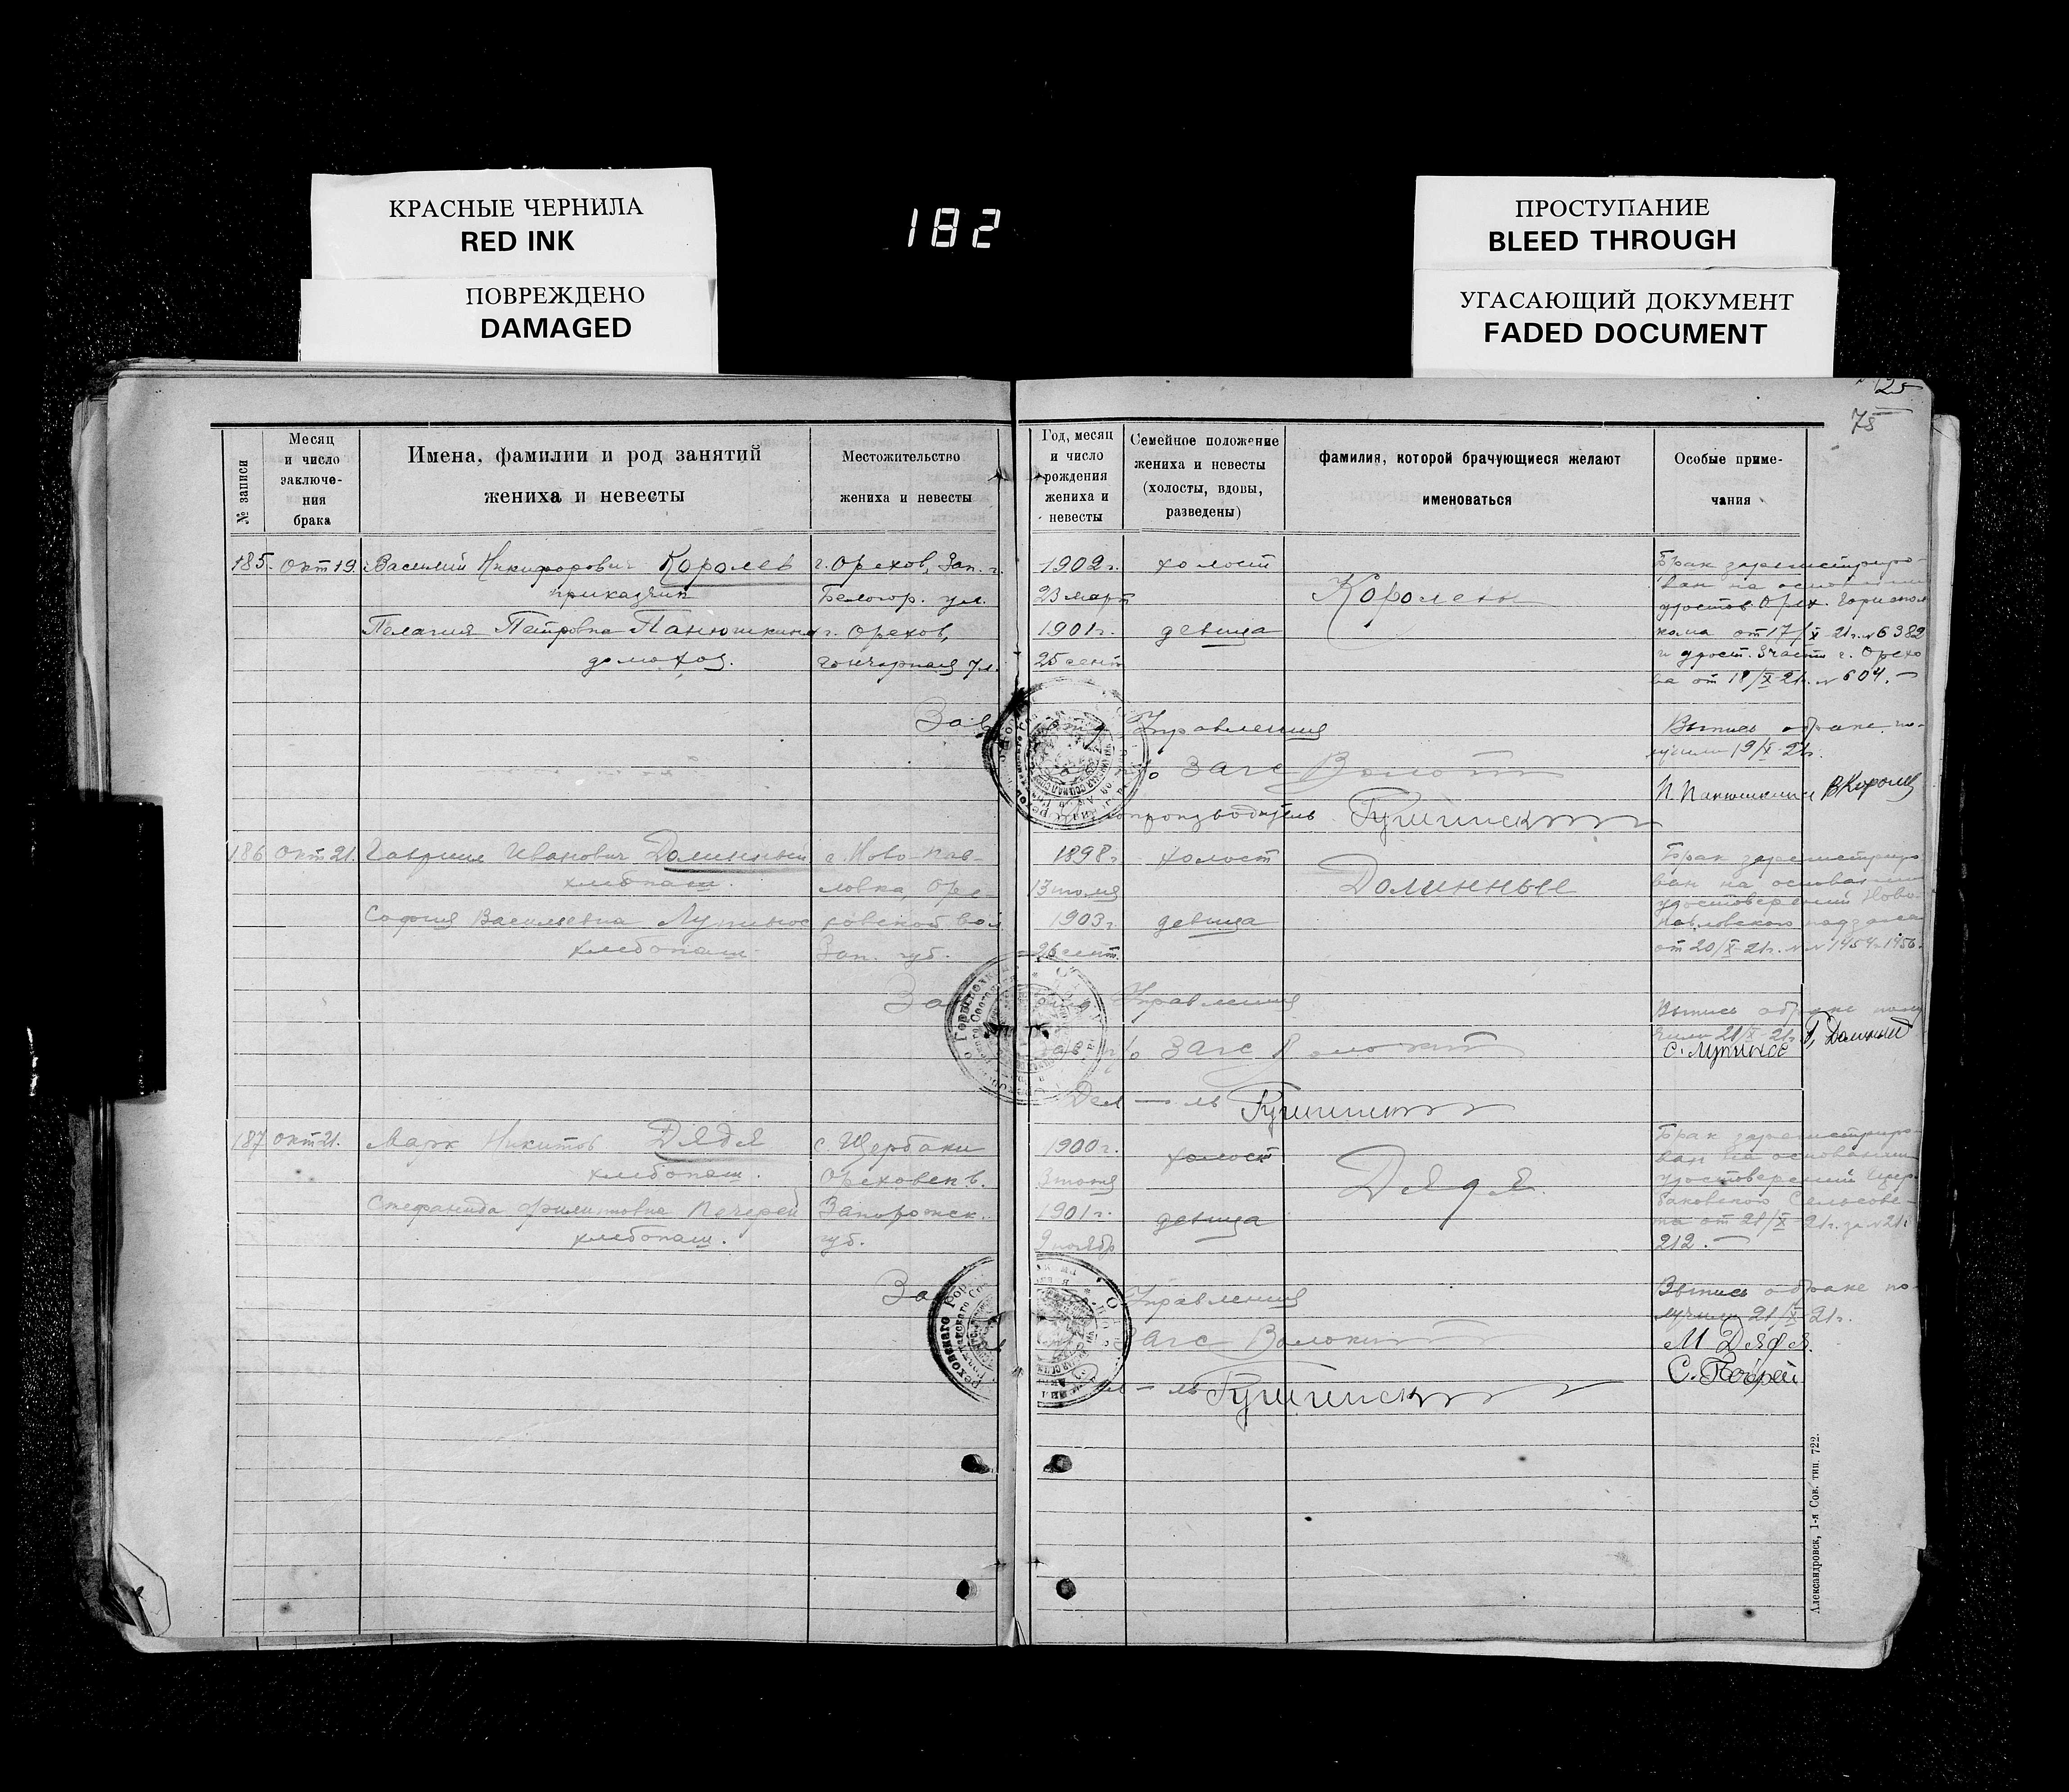 КРАСНЫЕ ЧЕРНИЛА
RED INK
ПОВРЕЖДЕНО
DAMAGED
182
ПРОСТУПАНИЕ
BLEED THROUGH
УГАСАЮЩИЙ ДОКУМЕНТ
FADED DOCUMENT
125
75
№ записи
Месяц
и число
заключе-
ния
брака
Имена, фамилии и род занятий
жениха и невесты
Местожительство
жениха и невесты
Год, месяц
и число
рождения
жениха и
невесты
Семейное положение
жениха и невесты
(холосты, вдовы,
разведены)
фамилия, которой брачующиеся желают
именоваться
Особые приме-
чания
185. Окт 19. Василий Никифорович Королев г. Орехов, Зап. г. 1902 г. холост
приказчик Белогор. ул. 23 март
Королевы
Пелагия Петровна Панюшкина г. Орехов, 1901 г. девица
домохоз. Гончарная ул. 25 сент
Брак зарегистриро-
ван на основании
удостов. Орех.
кома от 17/X 21 г. № 6382
и удост. 3 части г. Орехо
ва от 18/X 21 г. № 604. —
Зав Управления
Загс
производитель
Выпись о браке по-
лучили 19/X 21 г.
П. Панюшкина В Королев
186 Окт 21. Гавриил Иванович Долинный с. Ново-Пав- 1898 г. холост
хлебопаш. ловка, Оре- 13 июля
Долинные
София Васильевна Лупинос ховской вол 1903 г. девица
хлебопаш. Зап. губ. 26 сент.
Брак зарегистриро
ван на основании
удостоверений Ново-
павловского
от 20/X 21 г. № № 1454 1456.
За Управления
Загс
Дел — ль
Выпись о браке полу
чили 21/X 21 г. Г. Долинный
С. Лупинос
187 Окт 21. Марк Никитов Дядя с. Щербаки 1900 г. холост
хлебопаш. Ореховск в. 3 июня
Дядя.
Стефанида Филипповна Печерей Запорожск. 1901 г. девица
хлебопаш. губ. 9 ноябр
Брак зарегистриро-
ван на основании
удостоверений Щер-
баковского Сельсове-
та от 21/X 21 г. за № 21
212. —
За Управления
Загс
Выпись о браке по-
лучили 21/X 21 г.
М Дядя.
С. Печерей
Александровск, 1-я Сов. тип. 722.